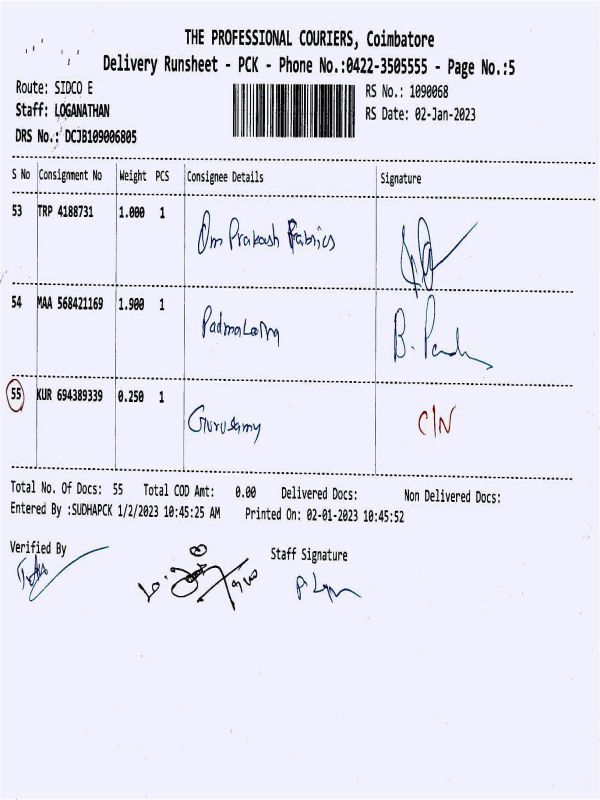 THE PROFESSIONAL COURIERS, Coimbatore
Delivery Runsheet - PCK - Phone No.:0422-3505555 - Page No.:5
Route: SIDCO E
RS No.: 1090068
Staff: LOGANATHAN
RS Date: 02-Jan-2023
DRS No.: DCJB109006805
S No Consignment No Weight PCS Consignee Details Signature
53 TRP 4188731 1.000 1 Om Prakash Fabrics
54 MAA 568421169 1.900 1
55 KUR 694389339 0.250 1 Gurusamy C/N
Total No. Of Docs: 55 Total COD Amt: 0.00 Delivered Docs: Non Delivered Docs:
Entered By :SUDHAPCK 1/2/2023 10:45:25 AM Printed On: 02-01-2023 10:45:52
Verified By Staff Signature